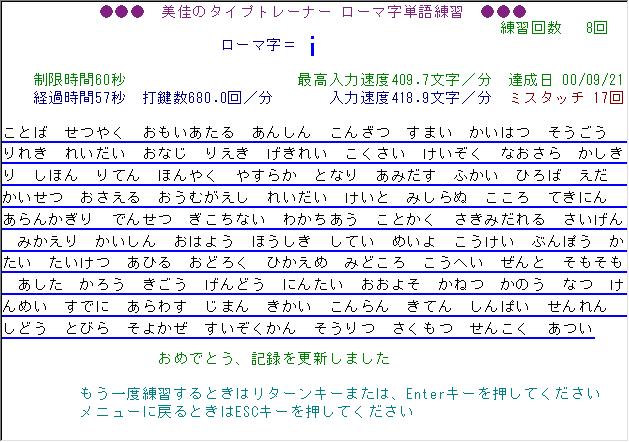 ●●● 美佳のタイプトレーナー ローマ字単語練習 ●●●
練習回数 8回
ローマ字= i
制限時間60秒 最高入力速度409.7文字/分 達成日 00/09/21
経過時間57秒 打鍵数680.0回/分 入力速度418.9文字/分 ミスタッチ 17回
ことば せつやく おもいあたる あんしん こんざつ すまい かいはつ そうごう
りれき れいだい おなじ りえき げきれい こくさい けいぞく なおさら かしき
り しほん りてん ほんやく やすらか となり あみだす ふかい ひろば えだ
かいせつ おさえる おうむがえし れいだい けいと みしらぬ こころ てきにん
あらんかぎり でんせつ ぎこちない わかちあう ことかく さきみだれる さいげん
みかえり かいしん おはよう ほうしき してい めいよ こうけい ぶんぽう か
たい たいけつ あひる おどろく ひかえめ みどころ こうへい ぜんと そもそも
あした かろう きごう げんどう にんたい おおよそ かねつ かのう なつ け
んめい すでに あらわす じまん きかい こんらん きてん しんぱい せんれん
しどう とびら そよかぜ すいぞくかん そうりつ さくもつ せんこく あつい
おめでとう、記録を更新しました
もう一度練習するときはリターンキーまたは、Enterキーを押してください
メニューに戻るときはESCキーを押してください